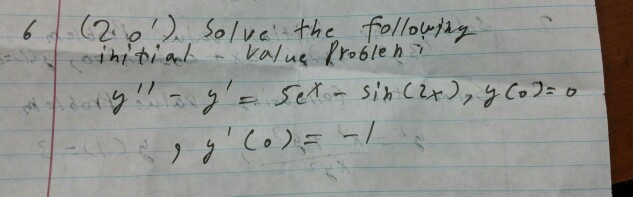 6 (20') Solve the following
initial - value problem:
y'' - y' = 5e^x - sin(2x), y(0) = 0
, y'(0) = -1